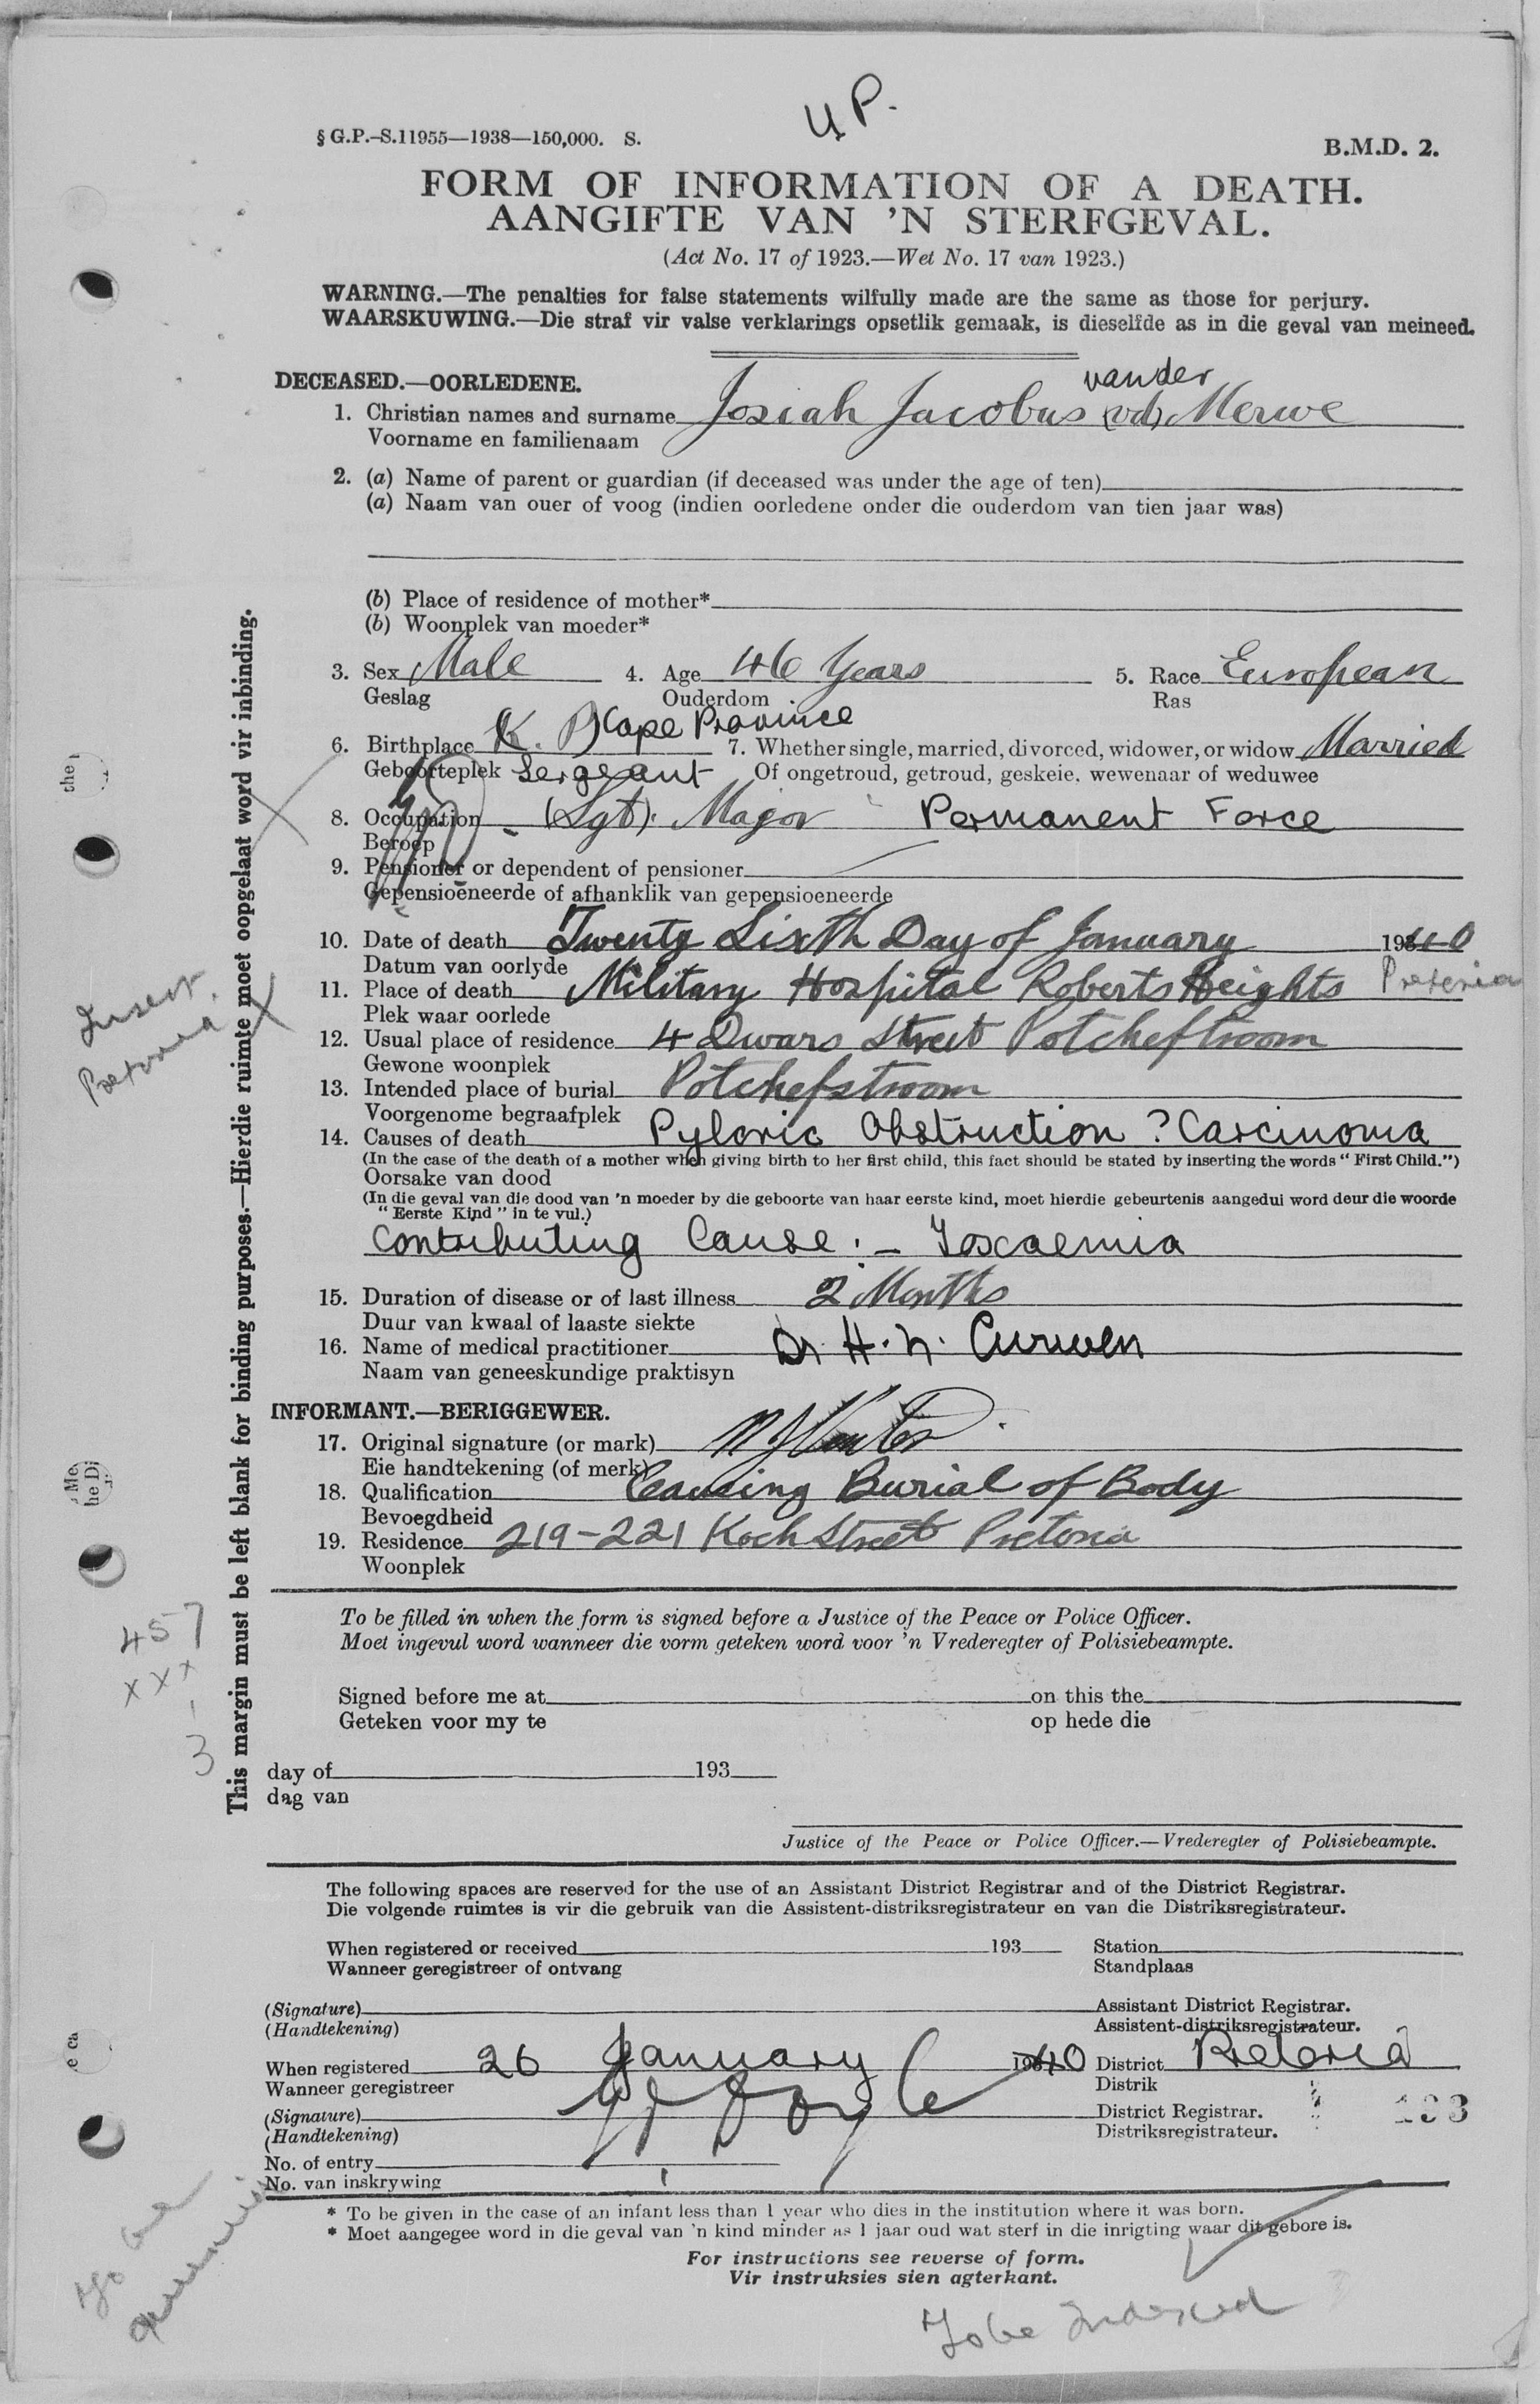 U P.
§ G.P.-S.11955—1938—150,000. S.
B.M.D. 2.
FORM OF INFORMATION OF A DEATH.
AANGIFTE VAN 'N STERFGEVAL.
(Act No. 17 of 1923.—Wet No. 17 van 1923.)
WARNING.—The penalties for false statements wilfully made are the same as those for perjury.
WAARSKUWING.—Die straf vir valse verklarings opsetlik gemaak, is dieselfde as in die geval van meineed.
DECEASED.—OORLEDENE.
van der
1. Christian names and surname Josiah Jacobus (vd) Merwe
Voorname en familienaam
2. (a) Name of parent or guardian (if deceased was under the age of ten)
(a) Naam van ouer of voog (indien oorledene onder die ouderdom van tien jaar was)
(b) Place of residence of mother*
(b) Woonplek van moeder*
3. Sex Male 4. Age 46 Years 5. Race European
Geslag Ouderdom Ras
6. Birthplace K. P. Cape Province 7. Whether single, married, divorced, widower, or widow Married
Geboorteplek Sergeant Of ongetroud, getroud, geskeie, wewenaar of weduwee
8. Occupation (Sgt). Major Permanent Force
Beroep
9. Pensioner or dependent of pensioner
Gepensioëneerde of afhanklik van gepensioeneerde
10. Date of death Twenty Sixth Day of January 1940
Datum van oorlyde
11. Place of death Military Hospital Roberts Heights Pretoria
Plek waar oorlede
12. Usual place of residence 4 Dwars Street Potchefstroom
Gewone woonplek
13. Intended place of burial Potchefstroom
Voorgenome begraafplek
14. Causes of death Pyloric Obstruction ? Carcinoma
(In the case of the death of a mother when giving birth to her first child, this fact should be stated by inserting the words "First Child.")
Oorsake van dood
(In die geval van die dood van 'n moeder by die geboorte van haar eerste kind, moet hierdie gebeurtenis aangedui word deur die woorde
"Eerste Kind" in te vul.)
Contributing Cause :— Toxaemia
15. Duration of disease or of last illness 2 Months
Duur van kwaal of laaste siekte
16. Name of medical practitioner Dr. H. N. Curwen
Naam van geneeskundige praktisyn
INFORMANT.—BERIGGEWER.
17. Original signature (or mark)
Eie handtekening (of merk)
18. Qualification Causing Burial of Body
Bevoegdheid
19. Residence 219-221 Koch Street Pretoria
Woonplek
To be filled in when the form is signed before a Justice of the Peace or Police Officer.
Moet ingevul word wanneer die vorm geteken word voor 'n Vrederegter of Polisiebeampte.
Signed before me at on this the
Geteken voor my te op hede die
day of 193
dag van
Justice of the Peace or Police Officer.—Vrederegter of Polisiebeampte.
The following spaces are reserved for the use of an Assistant District Registrar and of the District Registrar.
Die volgende ruimtes is vir die gebruik van die Assistent-distriksregistrateur en van die Distriksregistrateur.
When registered or received 193 Station
Wanneer geregistreer of ontvang Standplaas
(Signature) Assistant District Registrar.
(Handtekening) Assistent-distriksregistrateur.
When registered 26 January 1940 District Pretoria
Wanneer geregistreer Distrik
(Signature) District Registrar. 193
(Handtekening) Distriksregistrateur.
No. of entry
No. van inskrywing
* To be given in the case of an infant less than 1 year who dies in the institution where it was born.
* Moet aangegee word in die geval van 'n kind minder as 1 jaar oud wat sterf in die inrigting waar dit gebore is.
For instructions see reverse of form.
Vir instruksies sien agterkant.
To be Indexed
This margin must be left blank for binding purposes.—Hierdie ruimte moet oopgelaat word vir inbinding.
Insert
Pretoria
457
xxx
3
the
Me
he Di
e ca